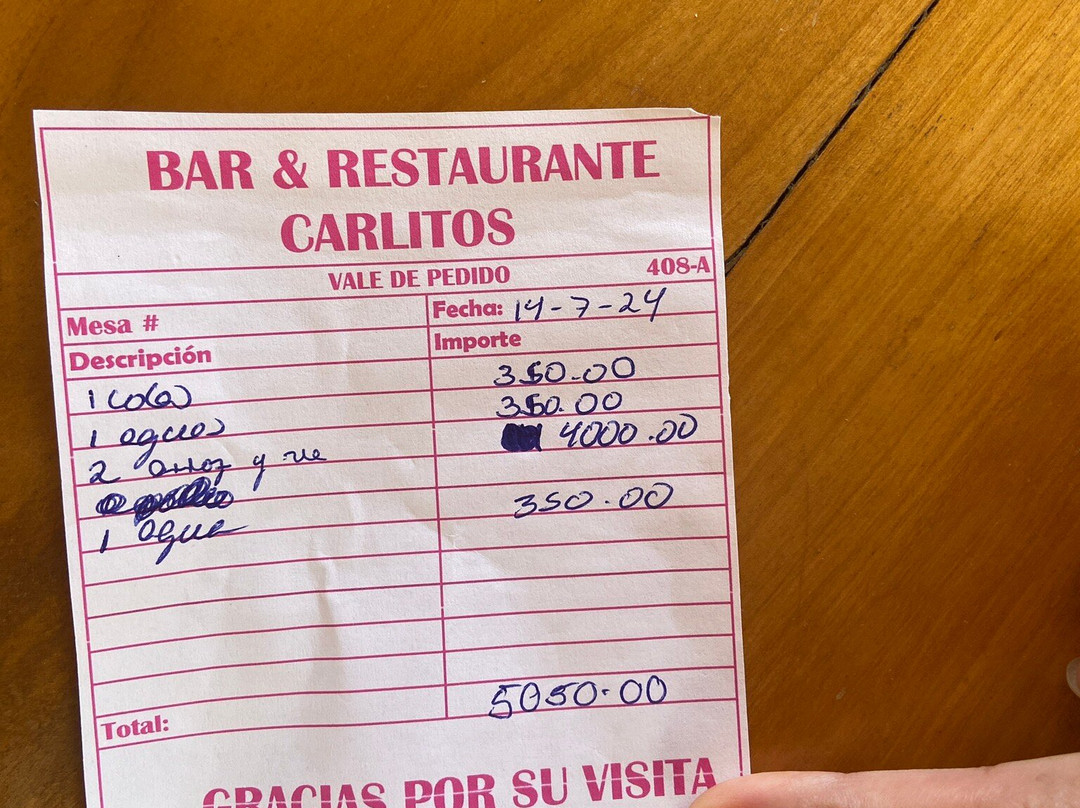 BAR & RESTAURANTE
CARLITOS
VALE DE PEDIDO 408-A
Mesa # Fecha: 14-7-24
Descripción Importe
1 cola 350.00
1 agua 350.00
2 arroz y 4000.00
1 agua 350.00
Total: 5050.00
GRACIAS POR SU VISITA